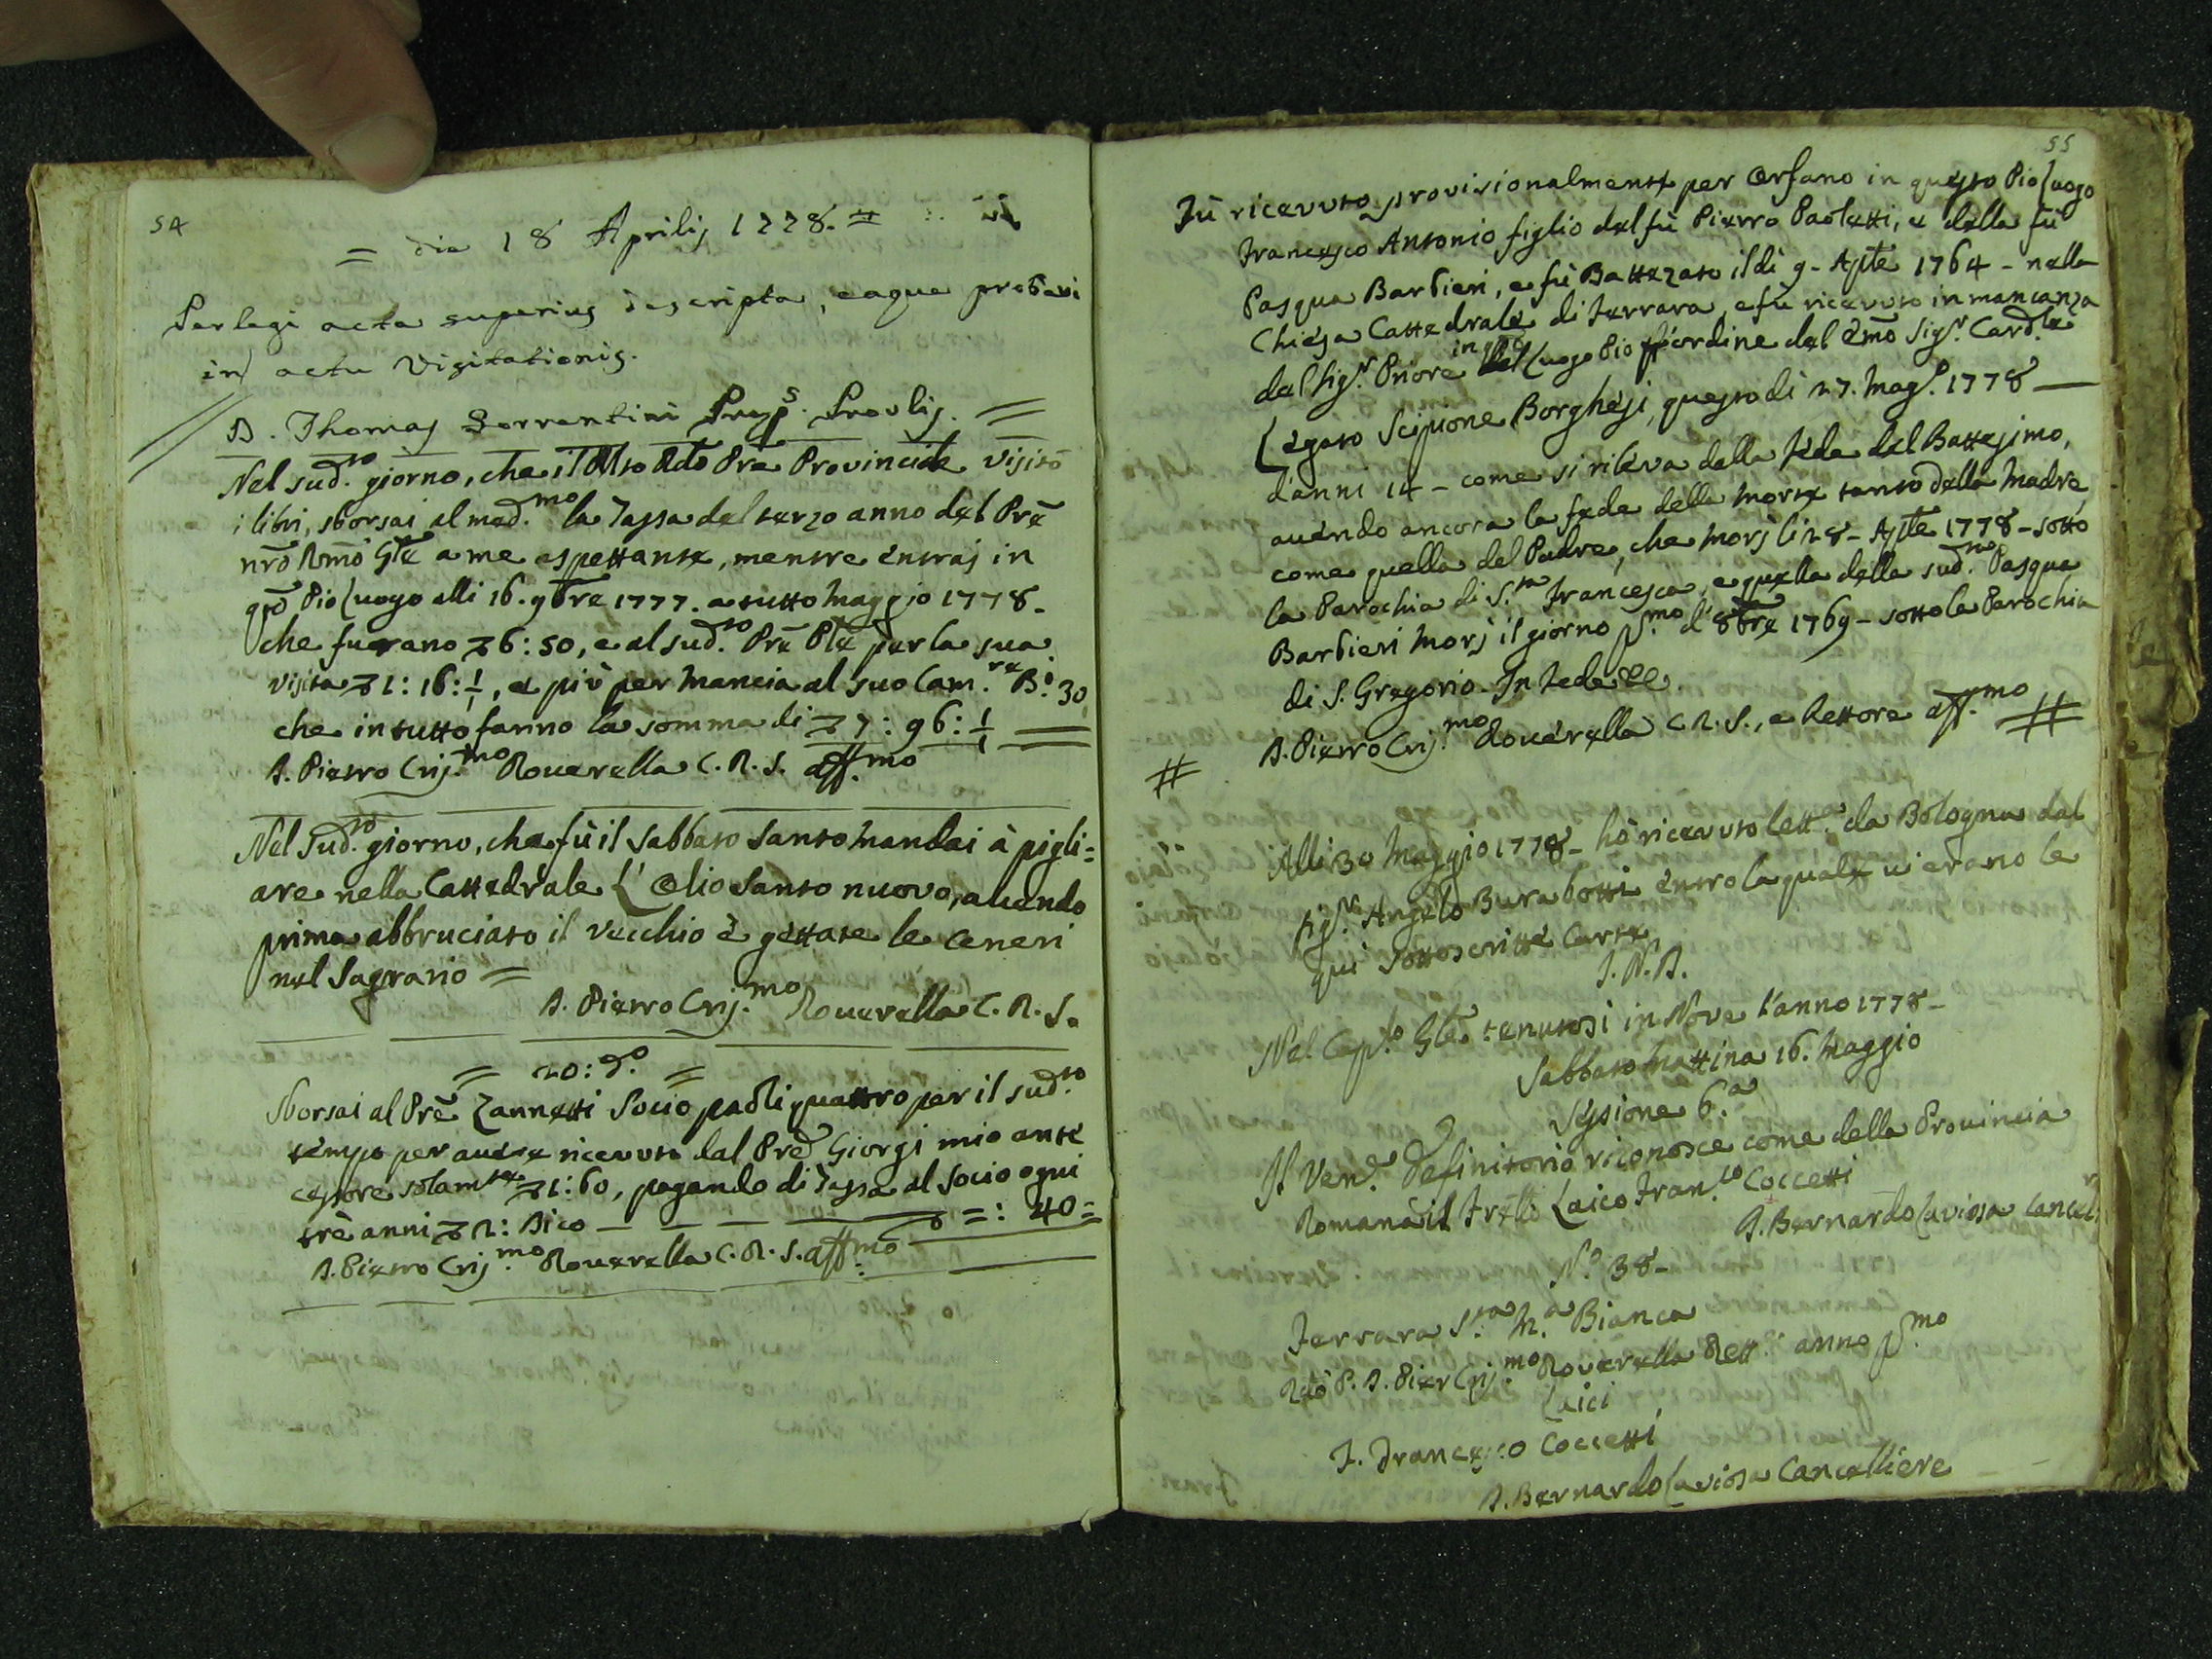 54
= die 18 Aprilis 1778. =
Perlegi acta superius descripta, eaque probavi
in actu Visitationis.
D. Thomas Sorrentini Prep.s Provlis. =
Nel sud.to giorno, che il Mto Rdo Pre Provinciale visitò
i libri, sborsai al med.mo la Tassa del terzo anno del Prē
nrō Rmō Gle a me espettante, mentre entraj in
qto Pio Luogo alli 16. 9bre 1777. a tutto Maggio 1778.
che furano 6: 50, e al sud.to Pre Ple per la sua
visita 1: 16: ½, e più per Mancia al suo Cam.re B.i 30
che in tutto fanno la somma di 7: 96: ½
D. Pietro Crij.mo Roverella C. R. S. aff.mo
Nel Sud.to giorno, che fù il Sabbato Santo Mandai à pigli=
are nella Cattedrale L'Olio Santo nuovo, avendo
prima abbruciato il Vecchio è gettate le Ceneri
nel Sagrario =
D. Pietro Crij.mo Roverella C. R. S.
= 20: d.o =
Sborsai al Prē Zannetti Socio paoli quattro per il sud.to
tempo per avere ricevuto dal Pred Giorgi mio ante
cessore solam.te 1: 60, pagando di Tassa al Socio ogni
trè anni 2: Dico — — — =: 40=
D. Pietro Crij.mo Roverella C. R. S. aff.mo
55
Fù ricevuto provisionalmente per Orfano in questo Pio Luogo
Francesco Antonio figlio del fù Pietro Paoletti, e della fù
Pasqua Barbieri, e fù Battezato il dì 9- Aple 1764 - nella
Chiesa Cattedrale di Ferrara, e fù ricevuto in mancanza
del Sig.r Priore in del Luogo Pio p ordine del Emō Sig.r Card.le
Legato Scipione Borghesi, questo dì 27. Mag.o 1778 —
d'anni 14 - come si rileva dalla fede del Battesimo,
avendo ancora la fede della Morte tanto della Madre
come quella del Padre, che morì li 28 - Aple 1778 - sotto
la Parochia di S.ta Francesca, e quella della sud.ta Pasqua
Barbieri morì il giorno p.mo d'8bre 1769 - sotto la Parochia
di S. Gregorio. In fede &c.
D. Pietro Crij.mo Roverella C. R. S., e Rettore aff.mo #
#
Alli 30 Maggio 1778 - hò ricevuto lett.a da Bologna dal
Sig.r Angelo Bura botti entro la quale vi erano le
qui sottoscritte Carte
J. N. D.
Nel Cap.lo Gle tenutosi in Nove l'anno 1778 -
Sabbato Mattina 16. Maggio
Sessione 6.a
Il Ven.e Definitorio riconosce come della Provincia
Romana il Frello Laico Fran.co Coccetti
D. Bernardo Laviosa Cancel.r
N.o 38 -
Ferrara S.ta M.a Bianca
Rdo P. D. Pier Crij.mo Roverella Rett.e anno p.mo
Laici
F. Francesco Coccetti
D. Bernardo Laviosa Cancelliere